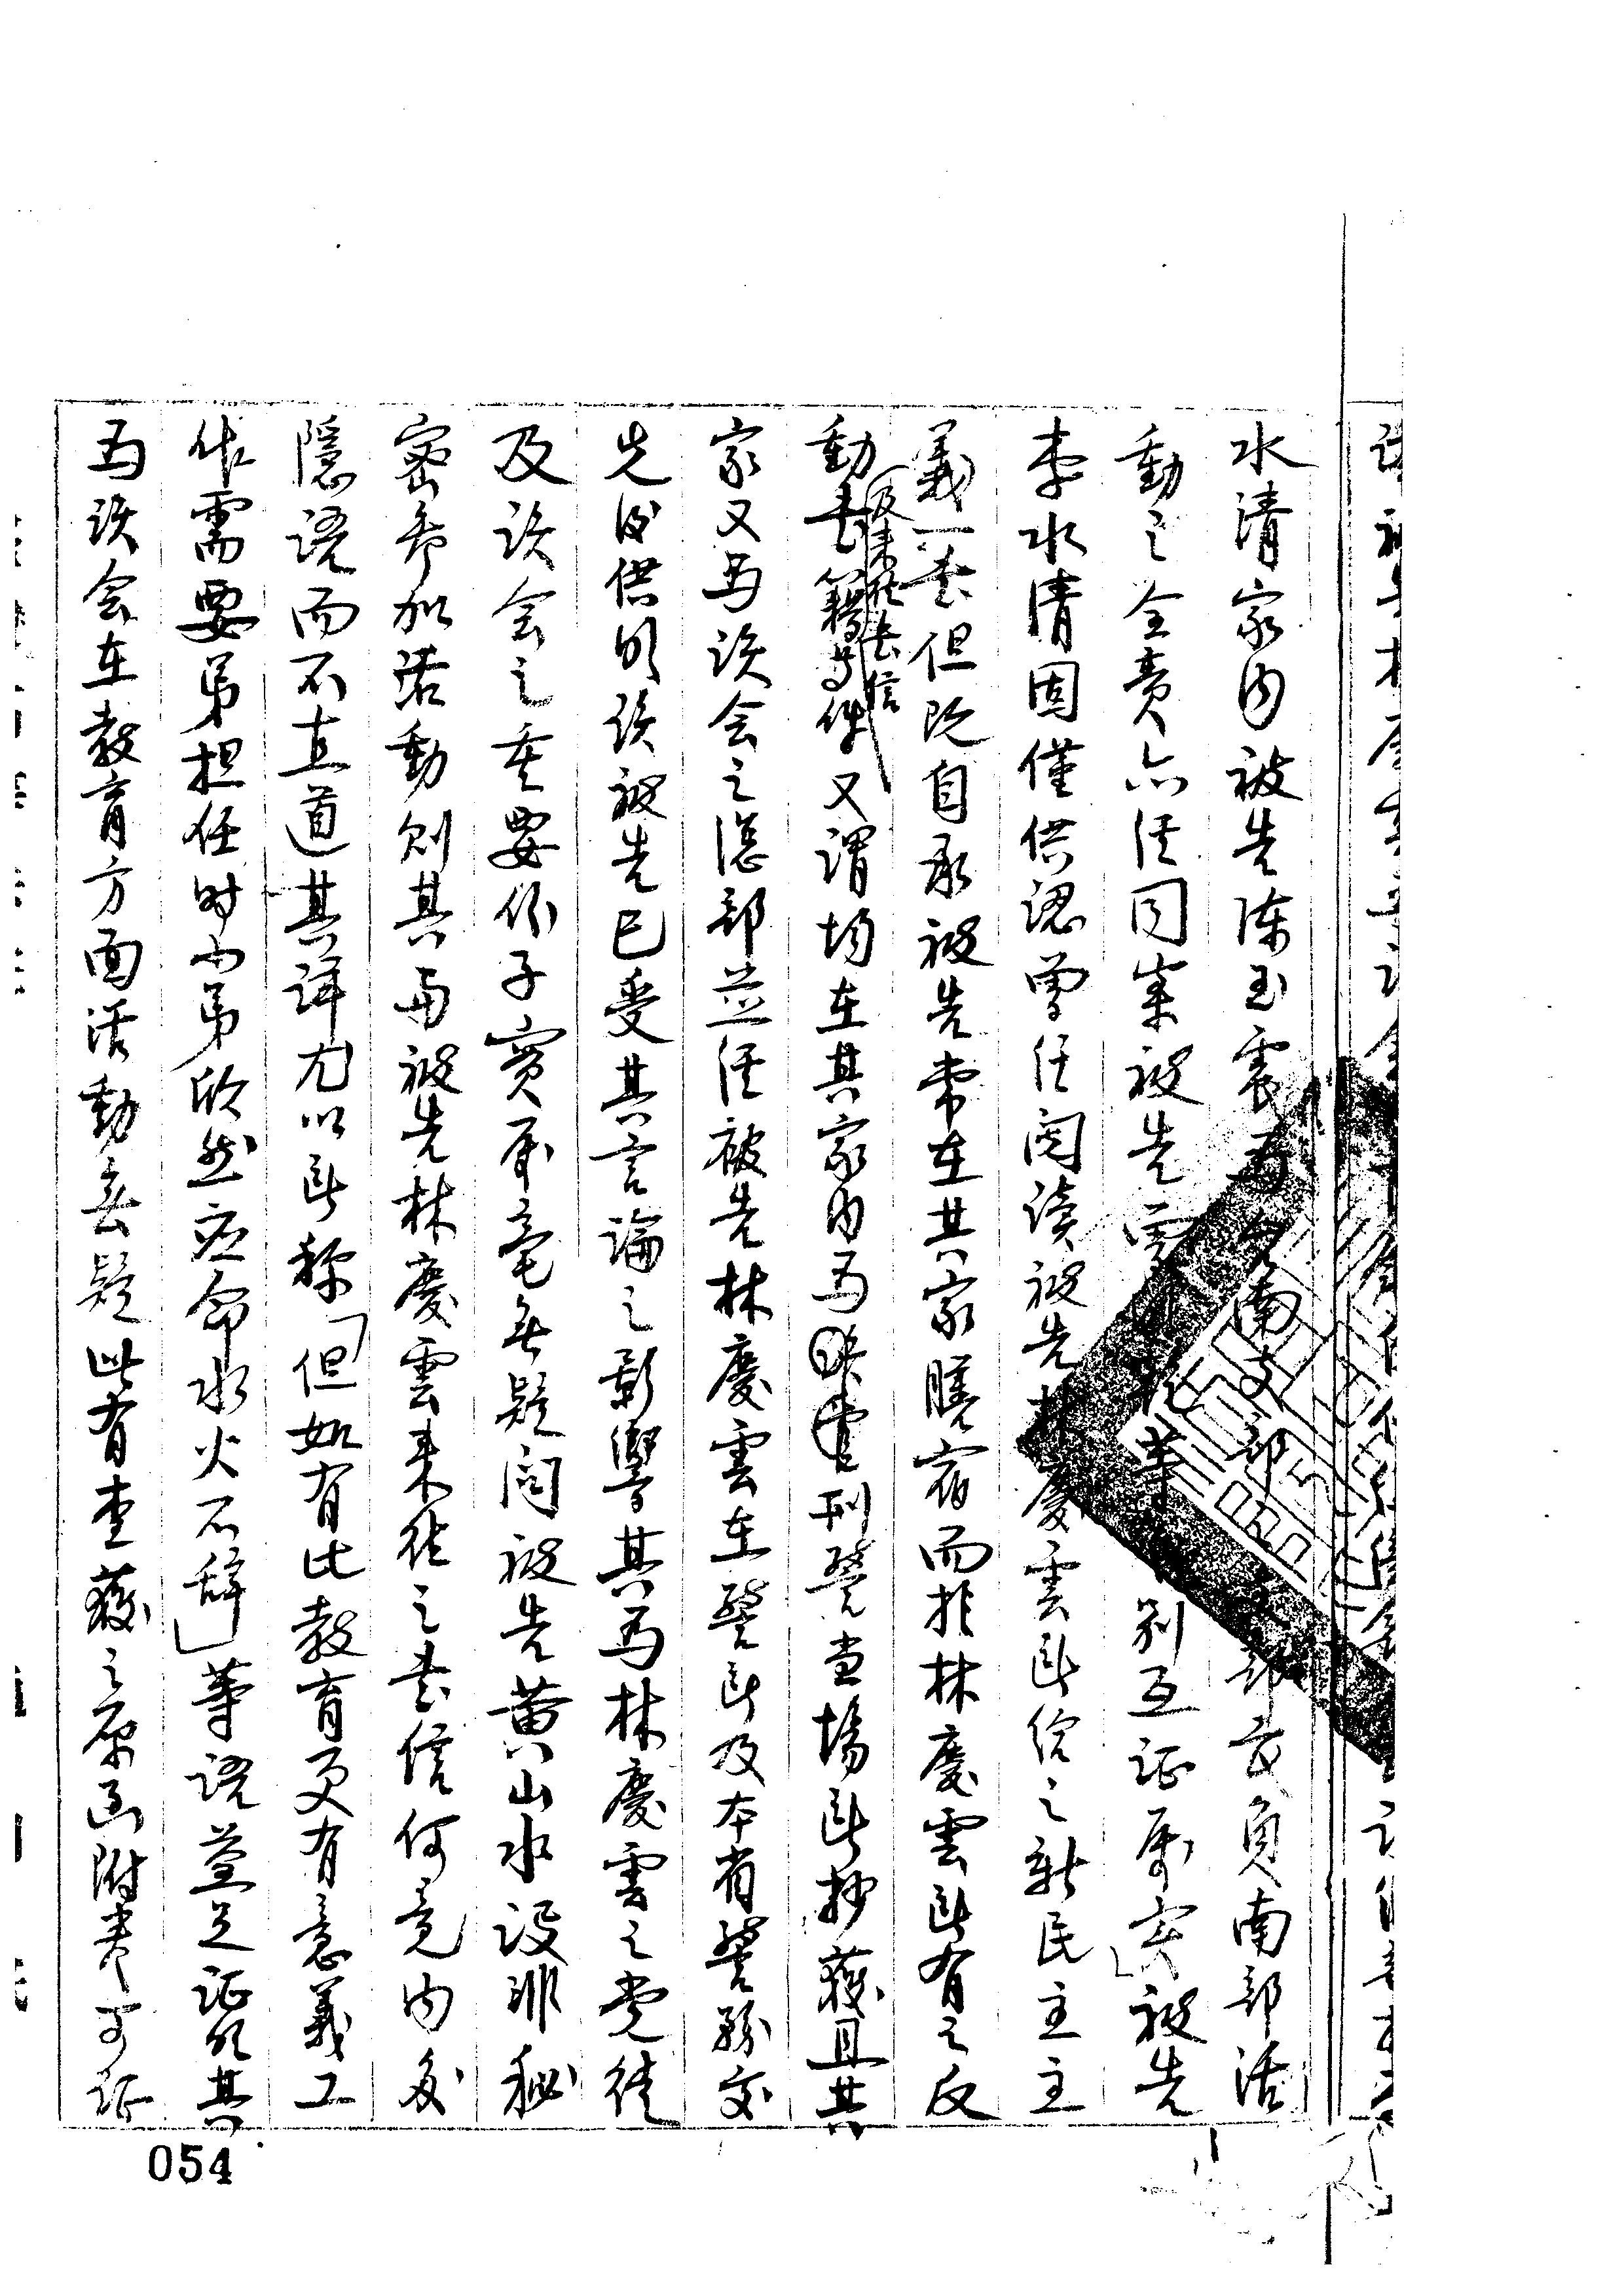 水清家內被告陳玉震為台南支部部員南部活
動之全責亦經同案被告曾等分別互証屬实」被告
李水清固僅供認曾任閱讀被告林慶雲所給之新民主主
義一書但既自承被告常在其家賭宿而於林慶雲所有之反
動書籍等件又謂均在其家內為刑警当場所抄獲且其
及來往書信
家又為該会之總部並經被告林慶雲在警所及本省警務交
先後供明該被告已受其言論之影響其為林慶雲之党徒
及該会之重要份子實屬毫無疑問被告黃山水設非秘
密參加活動則其與被告林慶雲來往之書信何竟內多
隱語而不直道其詳尤以所稱「但如有比教育更有意義工
作需要弟担任時小弟欣然应命水火不辞」等語並足証明其
為該会在教育方面活動無疑此有查獲之原函附卷可証
054